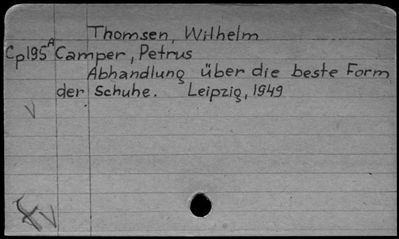 Thomsen, Wilhelm
Cp195A Camper, Petrus
Abhandlung über die beste Form
der Schuhe. Leipzig, 1949